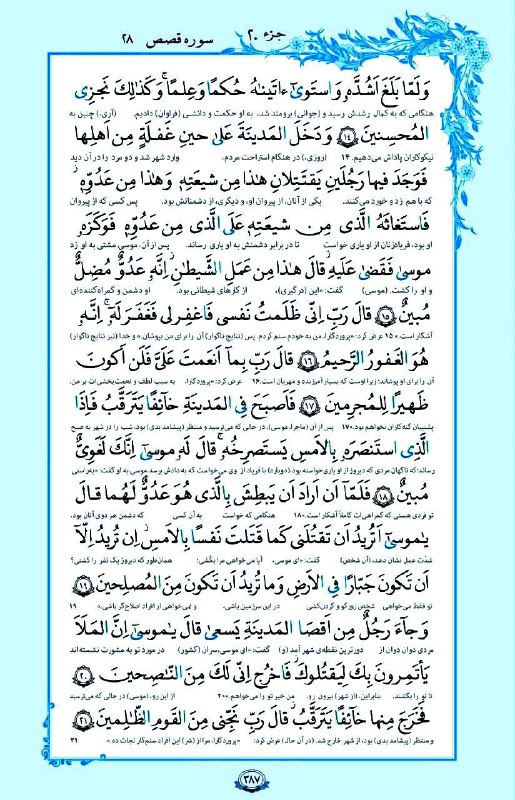 جزء ۲۰
سوره قصص ۲۸
وَلَمّا بَلَغَ اَشُدَّهُ وَاستَوىٰٓ ءاتَينٰهُ حُكمًا وَعِلمًا ۚ وَكَذٰلِكَ نَجزِى
هنگامی که به کمال رشدش رسید و (جوانی) برومند شد، به او حکمت و دانشی (فراوان) دادیم. (آری،) چنین به
المُحسِنينَ ﴿١٤﴾ وَدَخَلَ المَدينَةَ عَلىٰ حينِ غَفلَةٍ مِن اَهلِها
نیکوکاران پاداش می‌دهیم. ۱۴ (روزی،) در هنگام استراحت مردم، وارد شهر شد و دو مرد را در آن دید
فَوَجَدَ فيها رَجُلَينِ يَقتَتِلانِ هٰذا مِن شيعَتِهٖ وَهٰذا مِن عَدُوِّهٖ ۖ
که با هم زد و خورد می‌کنند. یکی از آنان، از پیروان او، و دیگری، از دشمنانش بود. پس کسی که از پیروان
فَاستَغاثَهُ الَّذى مِن شيعَتِهٖ عَلَى الَّذى مِن عَدُوِّهٖ فَوَكَزَهُ
او بود، فریادزنان از او یاری خواست تا در برابر دشمنش به او یاری رساند. پس از آن، موسی مشتی به او زد
موسىٰ فَقَضىٰ عَلَيهِ ۖ قالَ هٰذا مِن عَمَلِ الشَّيطٰنِ ۖ اِنَّهُ عَدُوٌّ مُضِلٌّ
و او را کشت. (موسی) گفت: «این (درگیری)، از کارهای شیطانی بود. او دشمن و گمراه‌کننده‌ای
مُبينٌ ﴿١٥﴾ قالَ رَبِّ اِنّى ظَلَمتُ نَفسى فَاغفِر لى فَغَفَرَ لَهُ ۚ اِنَّهُ
آشکار است.» ۱۵ عرض کرد: «پروردگارا، من به خودم ستم کردم. پس (نتایج ناگوار) آن را برای من بپوشان.» و خدا (نیز نتایج ناگوار)
هُوَ الغَفورُ الرَّحيمُ ﴿١٦﴾ قالَ رَبِّ بِما اَنعَمتَ عَلَىَّ فَلَن اَكونَ
آن را برای او پوشاند؛ زیرا اوست که بسیار آمرزنده و مهربان است. ۱۶ عرض کرد: «پروردگارا، به سبب لطف و نعمت‌بخشی‌ات بر من،
ظَهيرًا لِلمُجرِمينَ ﴿١٧﴾ فَاَصبَحَ فِى المَدينَةِ خآئِفًا يَتَرَقَّبُ فَاِذَا
پشتیبان گنه‌کاران نخواهم بود.» ۱۷ پس از آن (ماجرا، موسی)، در حالی که می‌ترسید و منتظر (پیشامد بدی) بود، شب را در شهر به صبح
الَّذِى استَنصَرَهُ بِالاَمسِ يَستَصرِخُهُ ۚ قالَ لَهُ موسىٰٓ اِنَّكَ لَغَوِىٌّ
رساند؛ که ناگهان مردی که دیروز از او یاری خواسته بود، (دوباره) با فریاد از وی می‌خواست که به دادش برسد. موسی به او گفت: «به‌راستی
مُبينٌ ﴿١٨﴾ فَلَمّآ اَن اَرادَ اَن يَبطِشَ بِالَّذى هُوَ عَدُوٌّ لَهُما قالَ
تو فردی هستی که گمراهی‌ات کاملاً آشکار است.» ۱۸ هنگامی که خواست به آن کسی که دشمن هر دوی آنان بود،
يٰموسىٰٓ اَتُريدُ اَن تَقتُلَنى كَما قَتَلتَ نَفسًا بِالاَمسِ ۖ اِن تُريدُ اِلّآ
شدت عمل نشان دهد، (آن شخص) گفت: «ای موسی، آیا می‌خواهی مرا بکُشی؛ همان‌طور که دیروز یک نفر را کشتی؟
اَن تَكونَ جَبّارًا فِى الاَرضِ وَما تُريدُ اَن تَكونَ مِنَ المُصلِحينَ ﴿١٩﴾
تو فقط می‌خواهی شخص زورگو و گردن‌کشی در این سرزمین باشی، و نمی‌خواهی از افراد اصلاح‌گر باشی.» ۱۹
وَجآءَ رَجُلٌ مِن اَقصَا المَدينَةِ يَسعىٰ قالَ يٰموسىٰٓ اِنَّ المَلَاَ
مردی دوان دوان از دورترین نقطه‌ی شهر آمد (و) گفت: «ای موسی، سران (کشور) در مورد تو به مشورت نشسته‌اند
يَأتَمِرونَ بِكَ لِيَقتُلوكَ فَاخرُج اِنّى لَكَ مِنَ النّٰصِحينَ ﴿٢٠﴾
تا تو را بکشند. بنابراین، (از شهر) بیرون رو. من خیر تو را می‌خواهم.» ۲۰ از این رو، (موسی) در حالی که می‌ترسید
فَخَرَجَ مِنها خآئِفًا يَتَرَقَّبُ ۖ قالَ رَبِّ نَجِّنى مِنَ القَومِ الظّٰلِمينَ ﴿٢١﴾
و منتظر (پیشامد بدی) بود، از شهر خارج شد. (در آن حال) عرض کرد: «پروردگارا، مرا از (شر) این افراد ستم‌کار نجات ده.» ۲۱
۳۸۷